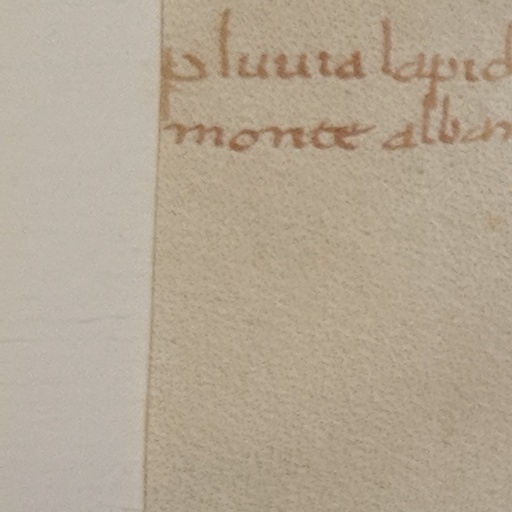 pluuia lapid
monte alban